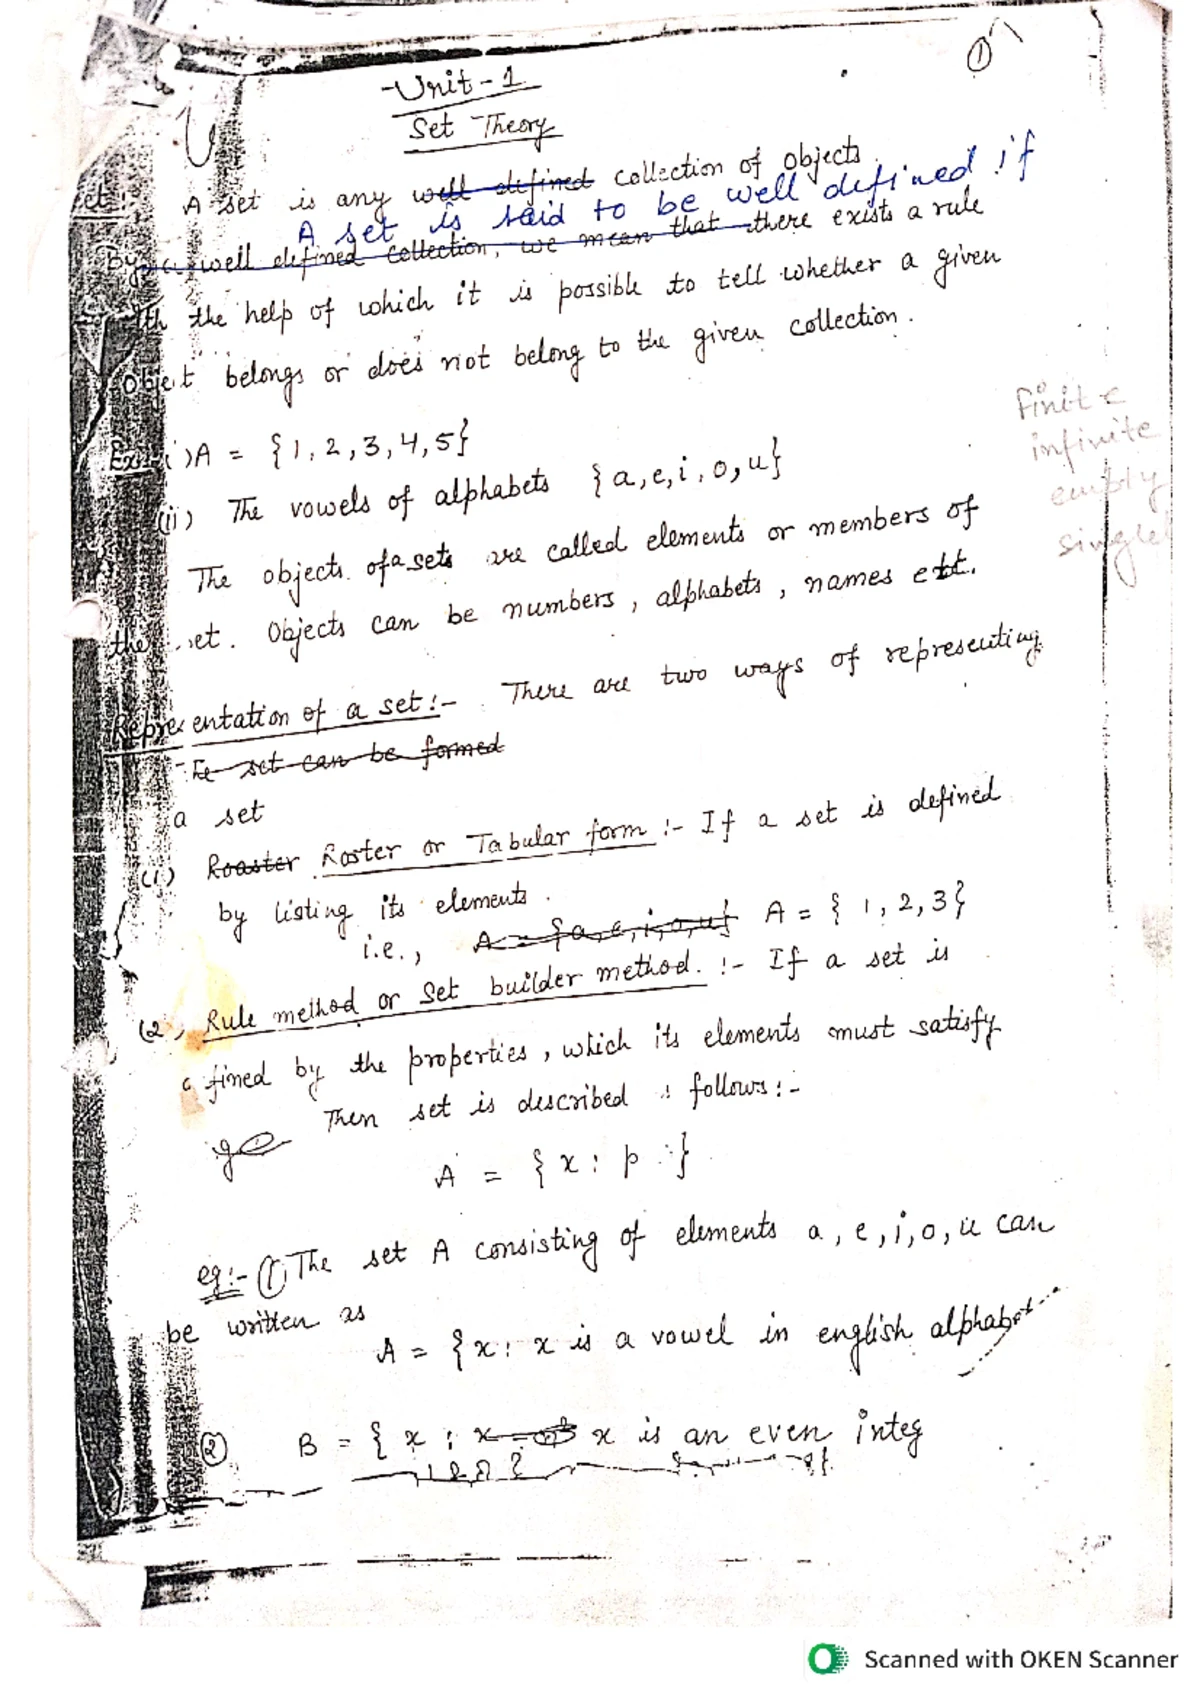 ①
Unit - 1
Set Theory
A set is any well defined collection of objects.
A set is said to be well defined if
By a well defined collection, we mean that there exists a rule
the help of which it is possible to tell whether a given
object belongs or does not belong to the given collection.
Finite
infinite
empty
single
Ex:- (i) A = {1, 2, 3, 4, 5}
(ii) The vowels of alphabets {a, e, i, o, u}
The objects of a sets are called elements or members of
the set. Objects can be numbers, alphabets, names ett.
Representation of a set :- There are two ways of representing
set can be formed
a set
(1) Roaster Roster or Tabular form :- If a set is defined
by listing its elements.
i.e., A = {a, e, i, o, u} A = {1, 2, 3}
(2) Rule method or Set builder method. :- If a set is
fined by the properties, which its elements must satisfy
Then set is described follows :-
A = {x : p }
eg:- (1) The set A consisting of elements a, e, i, o, u can
be written as
A = {x : x is a vowel in english alphabet
② B = {x : x x is an even integ
Scanned with OKEN Scanner